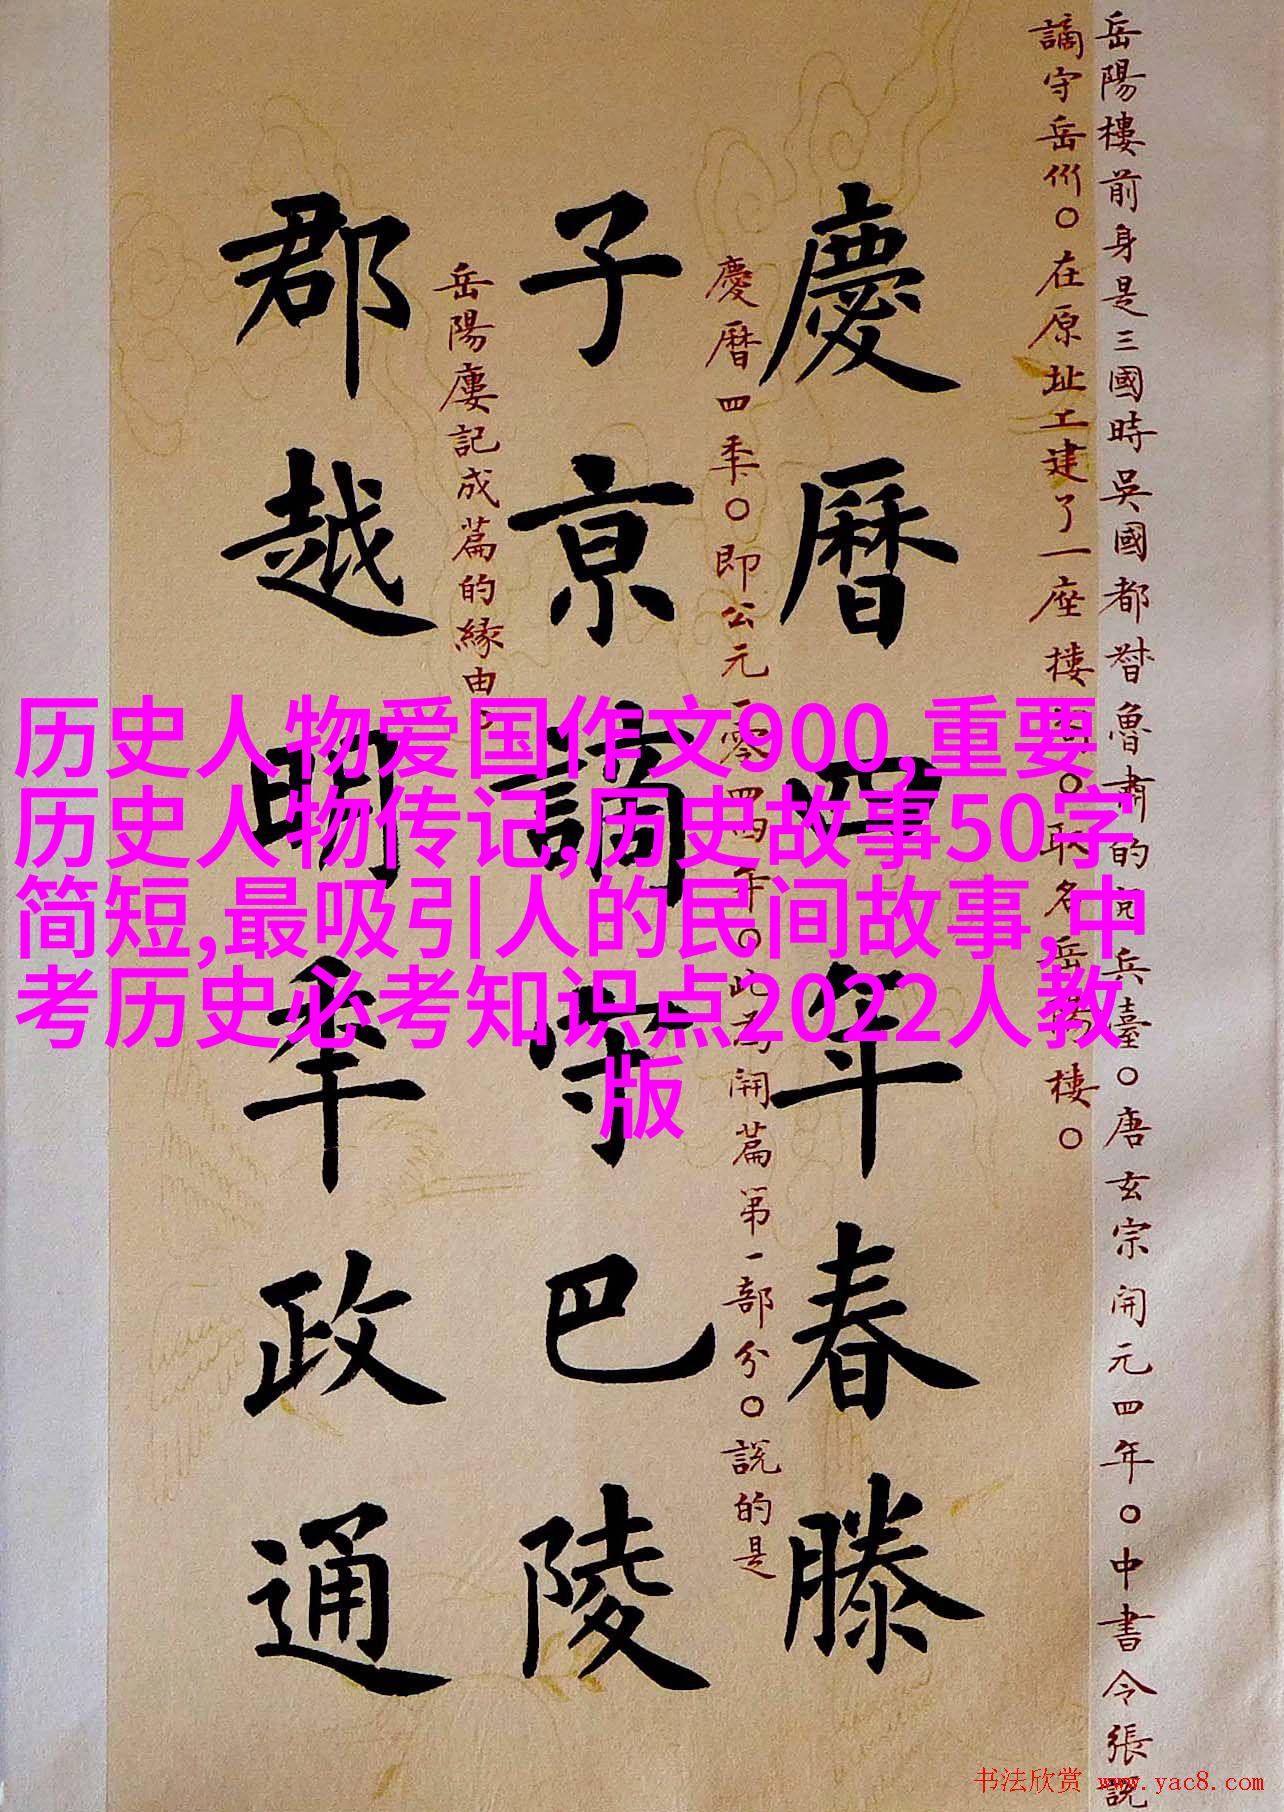 岳陽樓前身是三國時吳國都督魯肅的閱兵臺○唐玄宗開元四年○中書令張說
謫守岳州○在原址工建了一座樓○取名岳陽樓○
慶曆四年春滕
慶曆四年○即公元一零四四年○此為開篇第一部分○說的是
子京謫守巴陵
岳陽廔記成篇的緣由
郡越明年政通
历史人物爱国作文900,重要
历史人物传记,历史故事50字
简短,最吸引人的民间故事,中
考历史必考知识点2022人教
版
书法欣赏 www.yac8.com